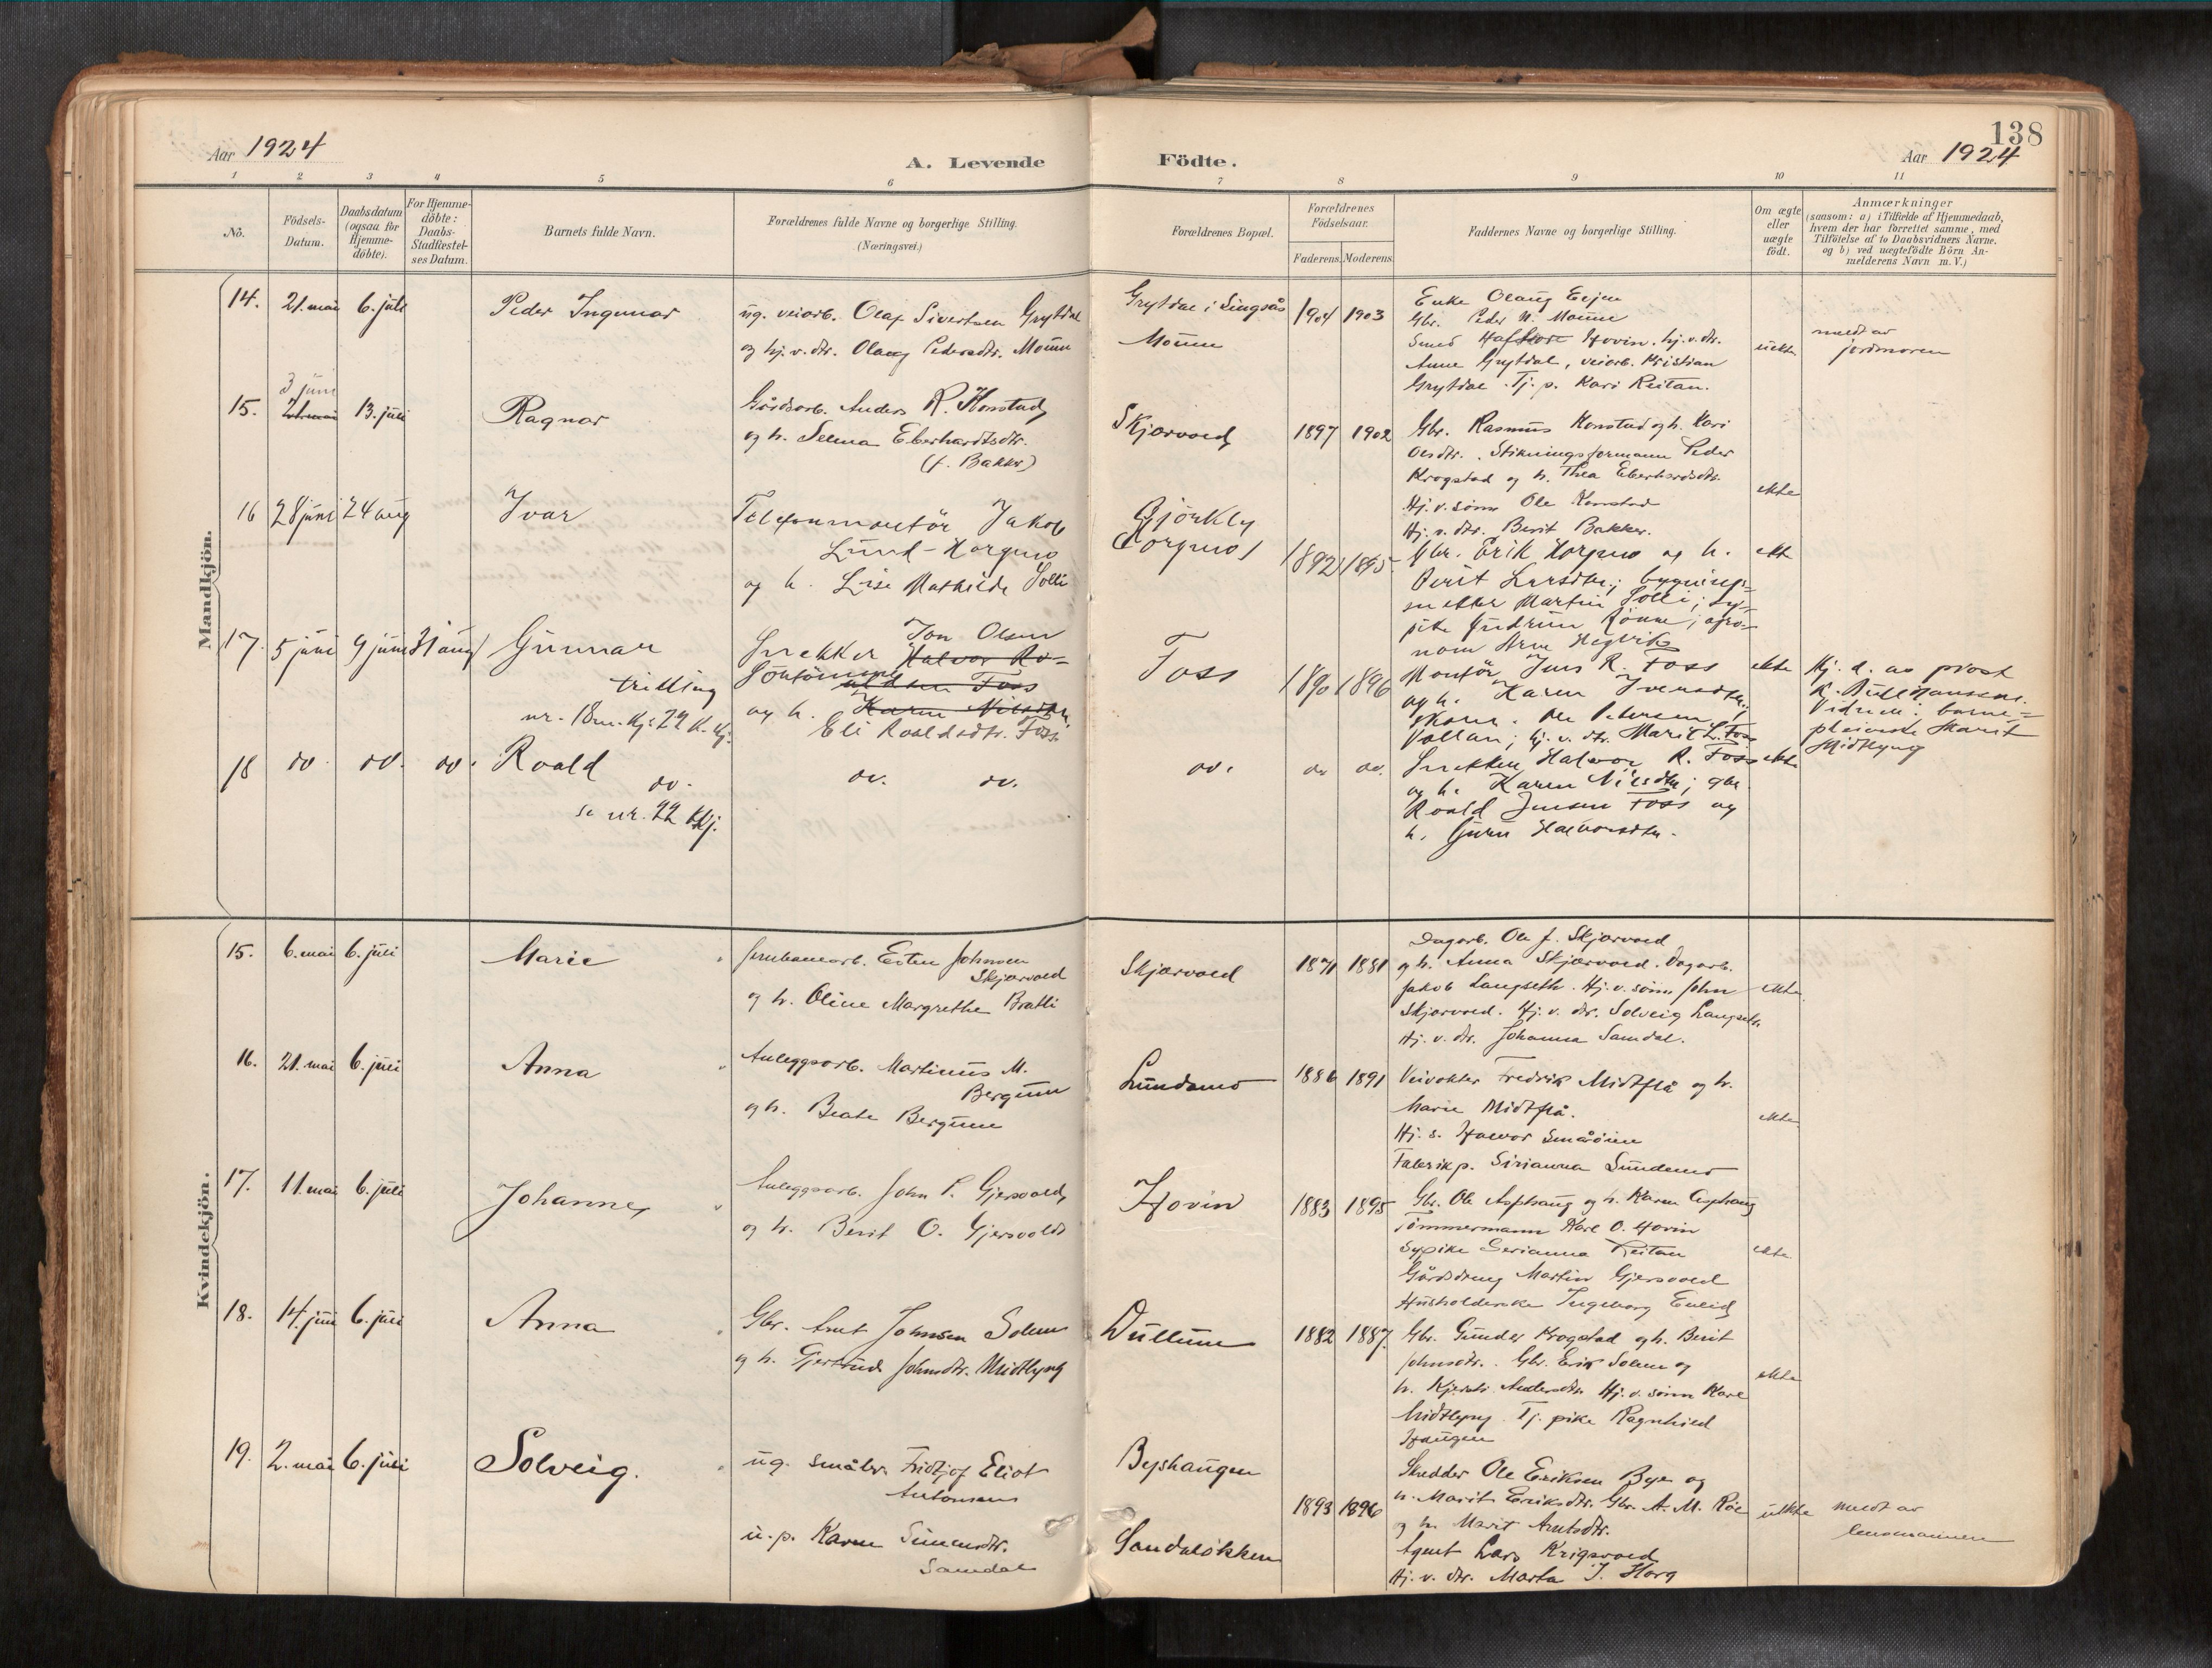 138
Aar 1924
A. Levende Födte.
Aar 1924
1 2 3 4 5 6 7 8 9 10 11
No.
Födsels-
Datum.
Daabsdatum
(ogsaa for
Hjemme-
döbte).
For Hjemme-
döbte:
Daabs-
Stadfestel-
ses Datum.
Barnets fulde Navn.
Forældrenes fulde Navne og borgerlige Stilling.
(Næringsvei.)
Forældrenes Bopæl.
Forældrenes
Födselsaar.
Faderens. Moderens.
Faddernes Navne og borgerlige Stilling.
Om ægte
eller
uægte
födt.
Anmærkninger
(saasom: a) i Tilfælde af Hjemmedaab,
hvem der har forrettet samme, med
Tilföielse af to Daabsvidners Navne.
og b) ved uægtefödte Börn An-
melderens Navn m. V.)
Mandkjön.
14. 21. mai 6. juli
Peder Ingemar
ug. veiarb. Olaf Sivertsen Grytdal
og hj.v.dtr. Olaug Pedersdtr. Moum
Grytdal i Singsås
Moum
1904 1903
Enke Olaug
Gbr. Peder N. Moum
Smed Hovin. hj.v.dtr.
Anne Grytdal, veiarb. Kristian
Grytdal. Tj. p. Kari Reitan.
uekte
meldt av
jordmoren
3 juni
15. 21. mai 13. juli
Ragnar
Gårdsarb. Anders R. Konstad
og h. Selma Eberhardtsdtr.
(f. Bakken)
Skjærvold
1897 1902
Gbr. Rasmus Konstad og h. Kari
Olsdtr. Stikningsformann Peder
Krogstad og h. Thea Eberhardsdtr.
Hj.v.sönn Ole Konstad
Hj. v. dtr. Berit Bakken.
ekte
16 28 juni 24 aug
Ivar
Telefonmontör Jakob
Lund-Horgmo
og h. Lise Mathilde Solli
Bjørkly
(Horgmo)
1892 1895
Gbr. Erik Horgmo og h.
Berit Larsdtr.; bygnings-
snekker Martin Solli; sy-
pike Gudrun Rönne; agro-
nom Arne Hegvik
ekte
17. 5 juni 9 juni 31 aug
Gunnar
trilling
nr. 18 m.kj. 22 k.kj.
Jon Olsen
Snekker Halvor Ro-
aldsen Foss
og h. Karen Nilsdtr.
Eli Roaldsdtr. Foss
Foss
1890 1896
Montör Jens R. Foss
og h. Karen Iversdtr.;
Ole Petersen
Vollan; hj. v. dtr. Marit L. Foss
ekte
Hj. d. av prost
K. Bull Hanssen.
Vidner: barne-
pleierske Marit
Midtlyng
18 do. do. do.
Roald
do.
se nr. 22 kkj.
do. do.
do.
do do.
Snekker Halvor R. Foss
og h. Karen Nilsdtr; gbr
Roald Jensen Foss og
h. Guru Halvorsdtr.
ekte
Kvindekjön.
15. 6. mai 6. juli
Marie
Jernbanearb. Esten Johnsen
Skjærvold
og h. Oline Margrethe Bratli
Skjærvold
1871 1881
Dagarb. Ole J. Skjærvold
og h. Anna Skjærvold. Dagarb.
Jakob Langseth. Hj. v. sönn John
Skjærvold. Hj. v. dtr. Solveig Langseth.
Hj. v. dtr. Johanna Samdal.
ekte
16. 21. mai 6. juli
Anna
Anleggsarb. Martinus M.
Bergum
og h. Beate Bergum
Lundamo
1886 1891
Veivokter Fredrik Midtflå og h.
Marie Midtflå.
Hj. s. Halvor Småöien
Fabrikp. Sirianna Lundemo
ekte
17. 11. mai 6. juli
Johanne
Anleggsarb. John P. Gjersvold
og h. Berit O. Gjersvold
Hovin
1883 1895
Gbr. Ole Asphaug og h. Karen Asphaug
Tömmermann Karl O. Hovin
Sypike Serianna Reitan
Gårdsdreng Martin Gjersvold
Husholderske Ingeborg Enlid
ekte
18. 14. juni 6. juli
Anna
Gbr. Arnt Johnsen Solem
og h. Gjertrud Johnsdtr. Midtlyng
Dullum
1882 1887.
Gbr. Gunder Krogstad og h. Berit
Johnsdtr. Gbr. Erik Solem og
h. Kjersti Andersdtr. Hj. v. sönn Karl
Midtlyng. Tj. pike Ragnhild
Haugen
ekte
19. 2. mai 6. juli
Solveig.
ug. småbr. Fridtjof Eliot
Antonsen
u. p. Karen Simensdtr.
Samdal
Byshaugen
Sandsløkken
1893 1896
Skredder Ole Eriksen Bye og
h. Marit Eriksdtr. Gbr. A. M. Röe
og h. Marit Arntsdtr.
Agent Lars Krigsvold
Hj. v. dtr. Marta J. Horg
uekte
meldt av
lensmannen